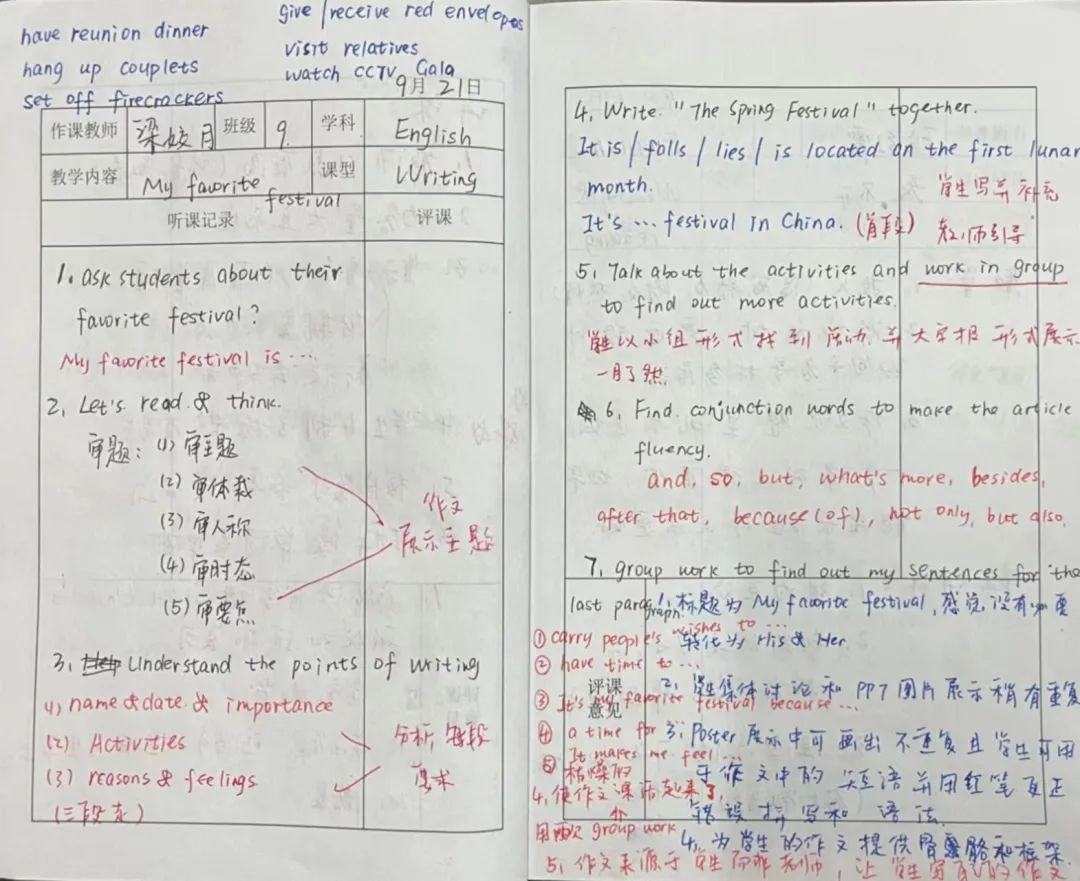 have reunion dinner
hang up couplets
set off firecrackers
give/receive red envelopes
visit relatives
watch CCTV Gala
9月21日
作课教师 梁姣月 班级 9. 学科 English
教学内容 My favorite festival 课型 Writing
听课记录 评课
1. ask students about their
favorite festival?
My favorite festival is …
2, Let's read & think.
审题: (1) 审主题
(2) 审体裁
(3) 审人称
(4) 审时态
(5) 审要点
作文
展示主题
3, Understand the points of writing
(1) name & date & importance
(2) Activities
(3) reasons & feelings
(三段式)
分析每段
要求
4, Write "The Spring Festival" together.
It is / falls / lies / is located on the first lunar
month.
It's … festival in China. (首段)
学生写并补充
教师引导
5, Talk about the activities and work in group
to find out more activities.
学生以小组形式找到活动,并大字报形式展示
一目了然.
6, Find conjunction words to make the article
fluency.
and, so, but, what's more, besides,
after that, because (of), not only, but also,
7, group work to find out my sentences for the
last paragraph.
① carry people's wishes to …
② have time to …
③ It's my favorite festival because …
④ a time for
⑤ It makes me feel …
评课
意见
1, 标题为 My favorite festival, 感觉没有必要
转化为 His & Her
2, 学生集体讨论和 PPT 图片展示稍有重复
3, Poster 展示中可画出不重复且学生可用
于作文中的短语并用红笔更正
错误拼写和语法.
4, 为学生的作文提供骨骼和框架.
4, 使枯燥的作文课活起来了,
用两次 group work
5, 作文来源于学生而非老师, 让学生写自己的作文